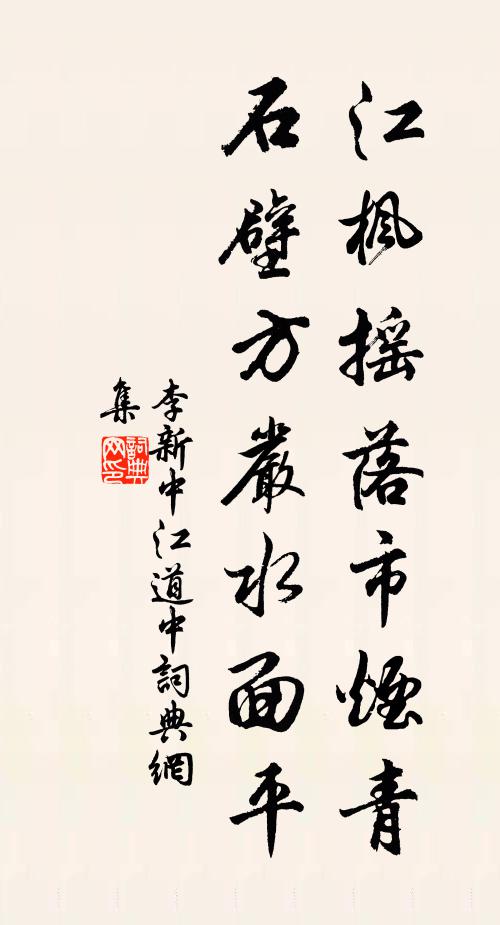 江楓搖落市煙青
石壁方嚴水面平
李新中江道中詞典網
集
詞典網印